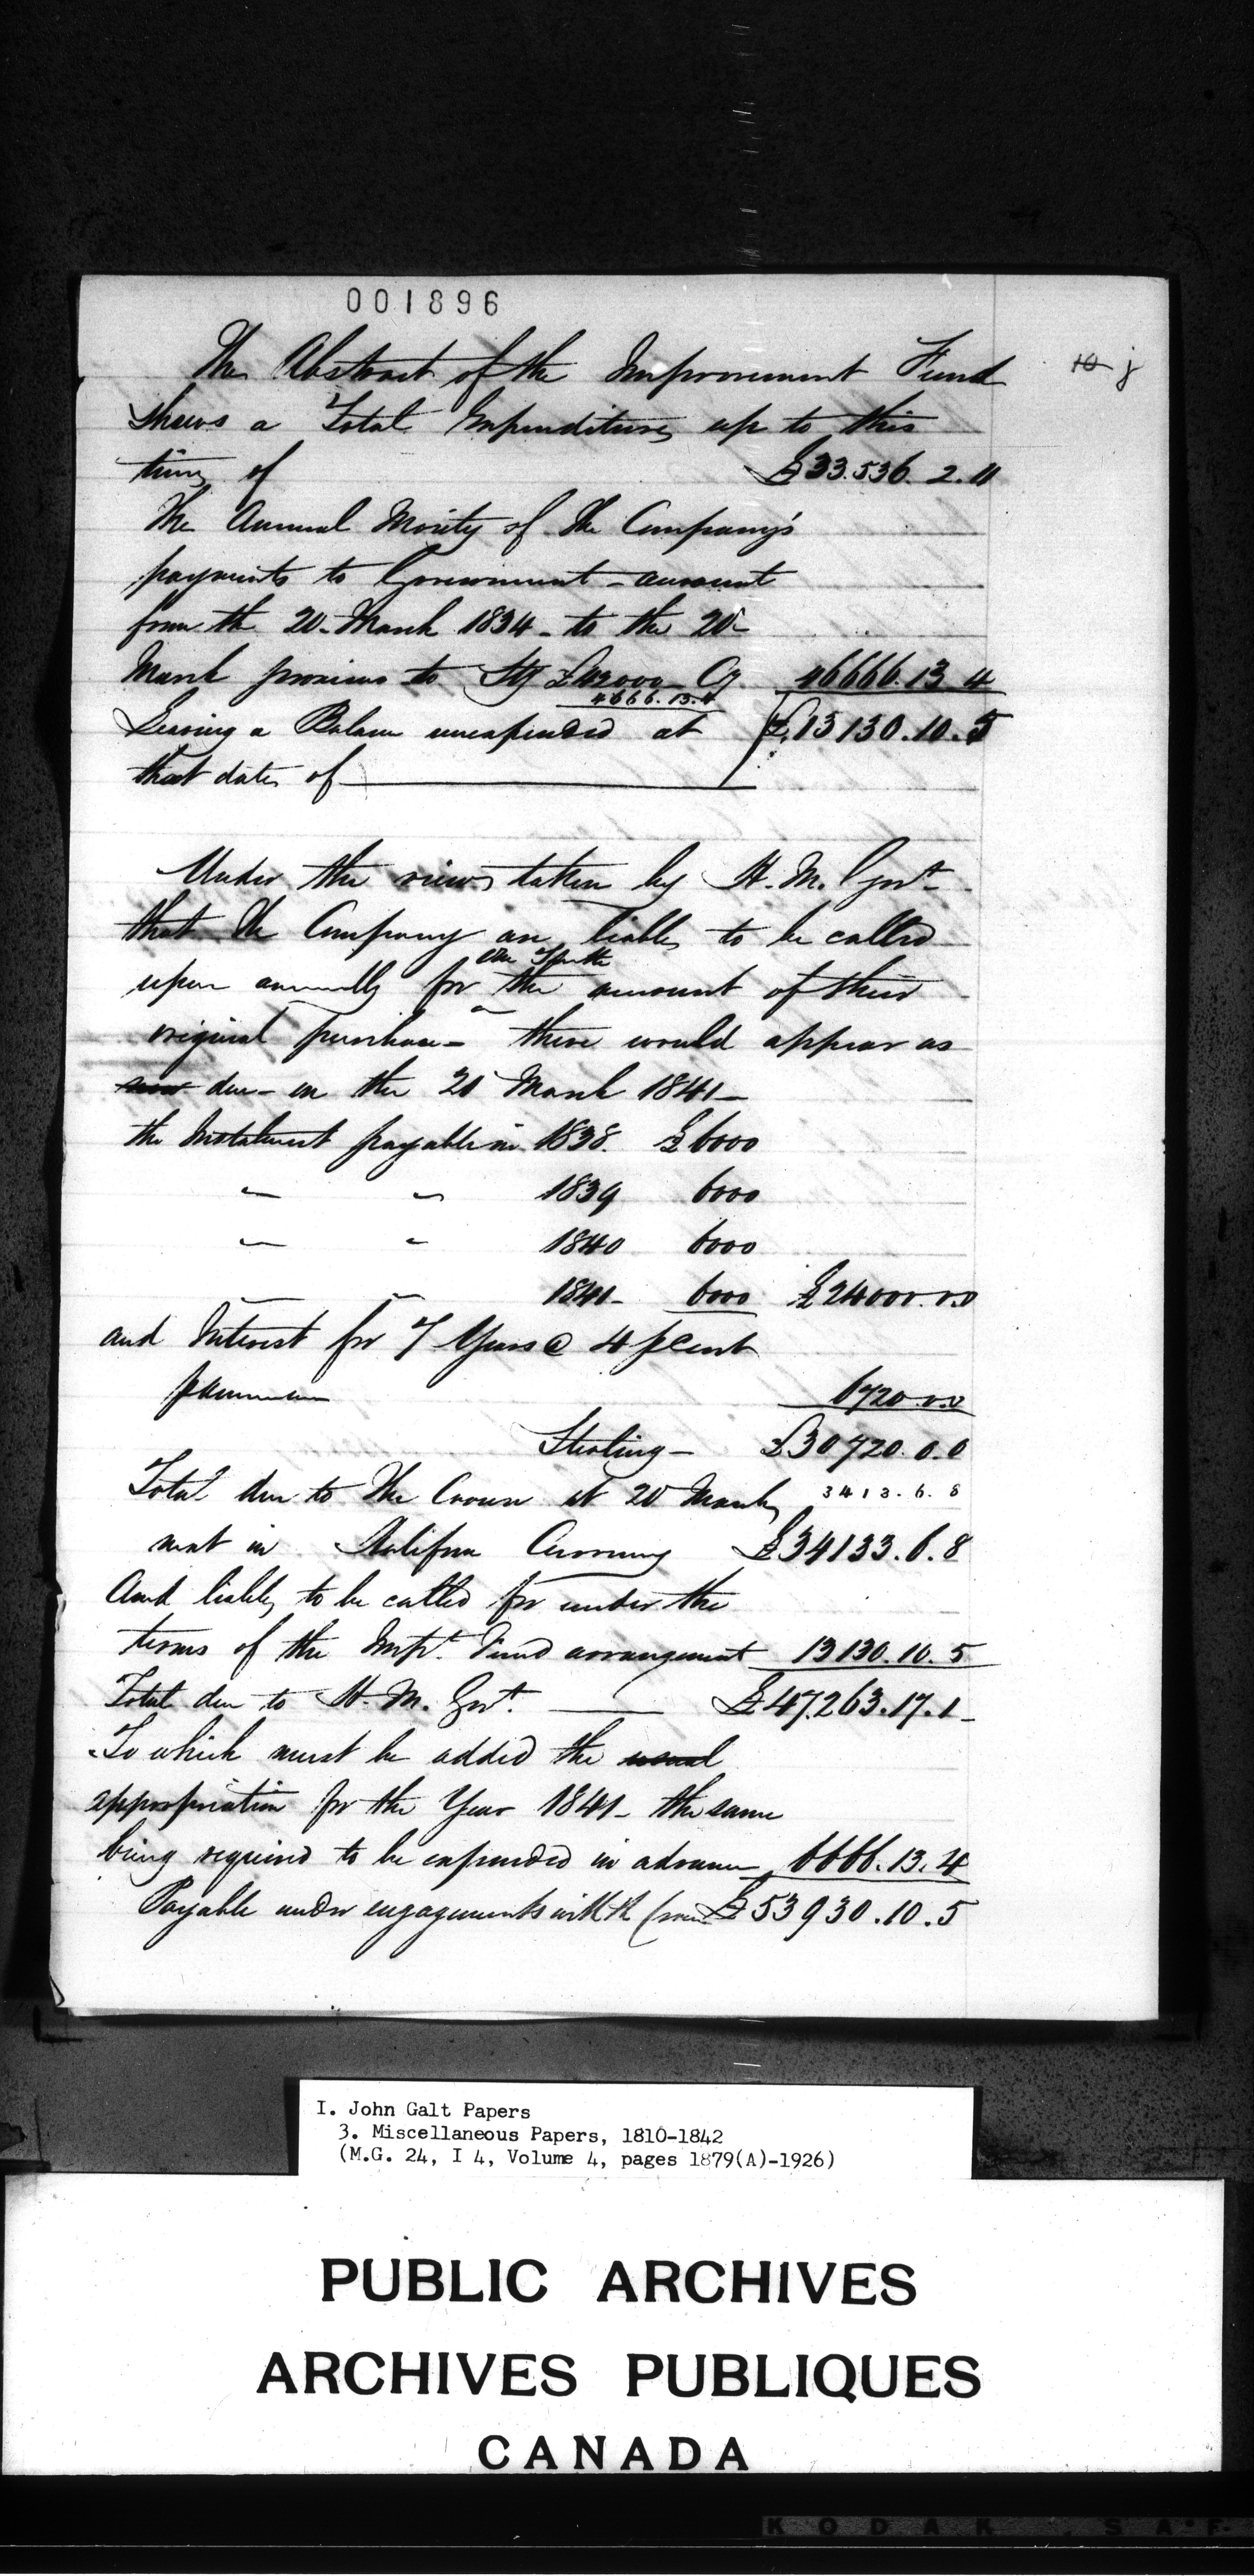 001896
The Abstract of the Improvement Fund
10 j
shews a Total Expenditure, up to this
time, of £33.536.2.11
The Annual Moiety of the Company's
payments to Government - amount
from the 20- March 1834 - to the 20-
March proximo to Stg £42000 - Cy 46666.13.4
4666.13.4
Leaving a Balance unexpended at £13130.10.5
that date, of
Under the view, taken by H. M. Govt.
that the Company are liable, to be called
one Tenth
upon annually for the amount of their
original purchase - there would appear as
now due - on the 20 March 1841 -
the Instalment payable in 1838. £6000
" " 1839 6000
" " 1840 6000
" " 1841 - 6000 £24000.0.0
and Interest for 7 Years @ 4 p Cent
p annum 6720.0.0
Sterling - £30720.0.0
Total due to the Crown at 20 March, 3413.6.8
next in Halifax Currency £34133.6.8
And liable, to be called for under the
terms of the Impt. Fund arrangement 13130.10.5
Total due to H. M. Govt. £47.263.17.1 -
To which must be added the usual
appropriation for the Year 1841 - the same
being required to be expended in advance, 6666.13.4
Payable under engagements with the Crown £53930.10.5
I. John Galt Papers
3. Miscellaneous Papers, 1810-1842
(M.G. 24, I 4, Volume 4, pages 1879(A)-1926)
PUBLIC ARCHIVES
ARCHIVES PUBLIQUES
CANADA
KODAK SAF